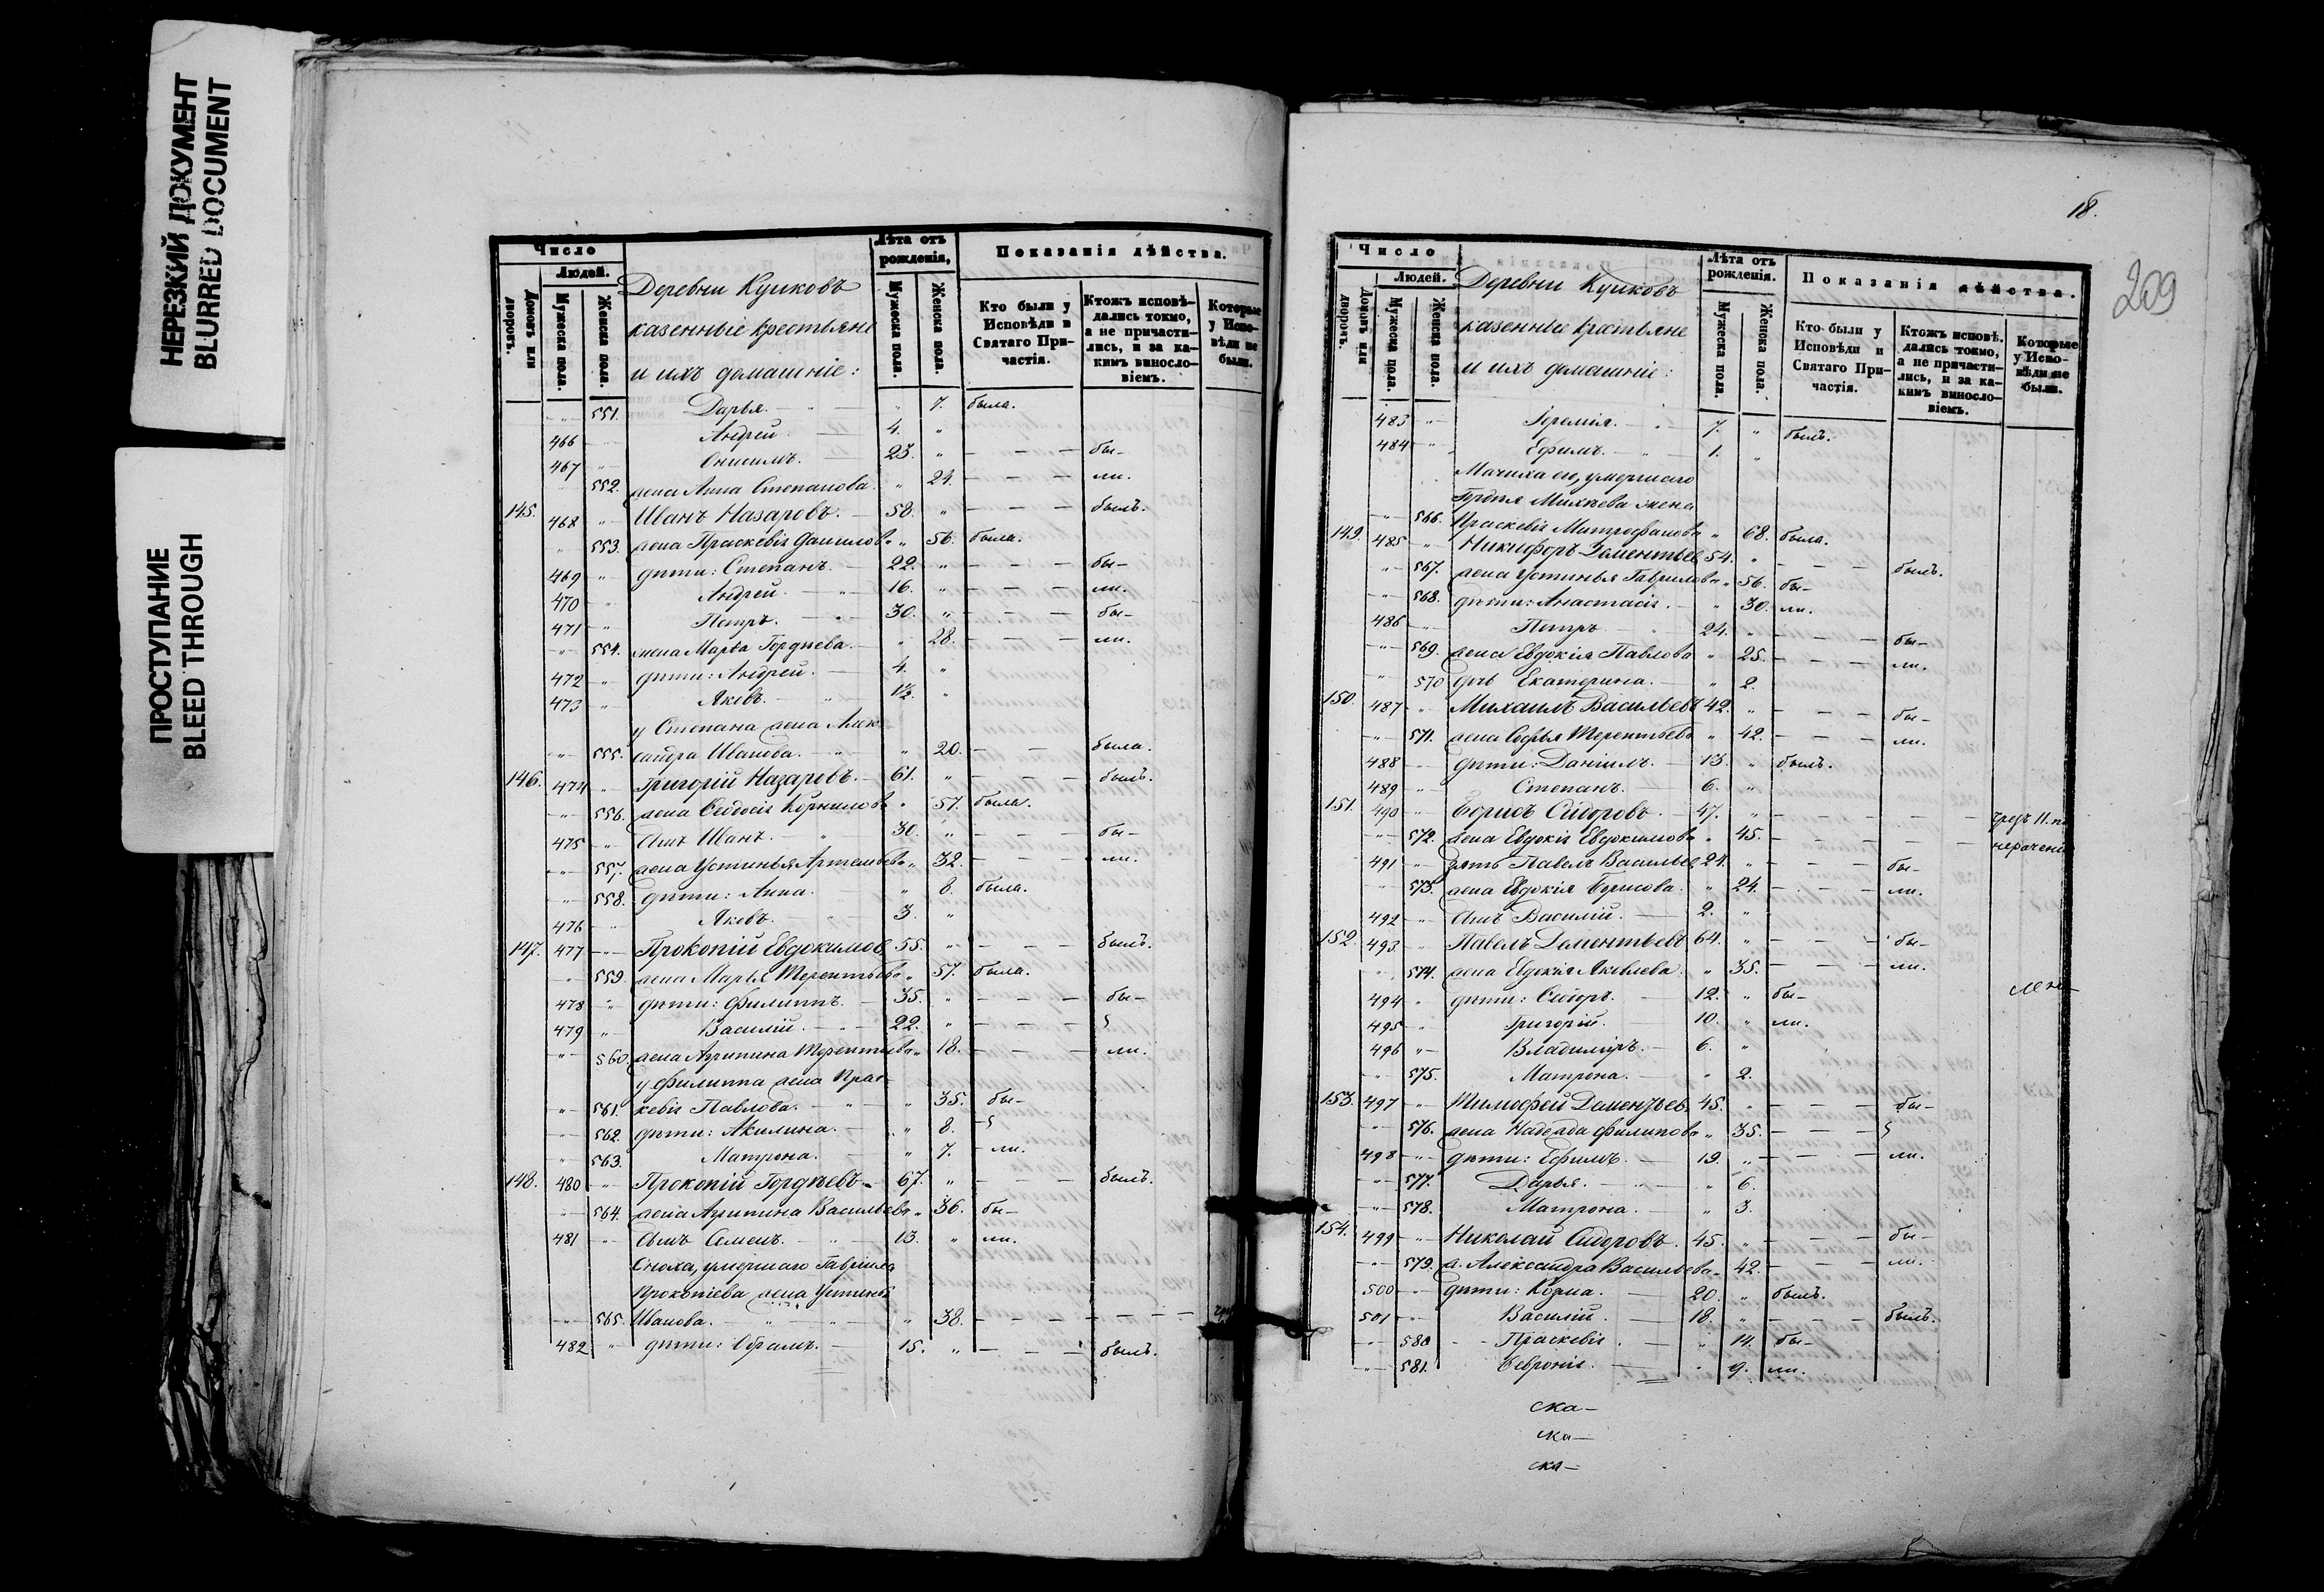 НЕРЕЗКИЙ ДОКУМЕНТ
BLURRED DOCUMENT
ПРОСТУПАНИЕ
BLEED THROUGH
Число
Людей.
Домовъ или дворовъ.
Мужеска пола.
Женска пола.
Деревни Куликовъ
казенные крестьяне
и ихъ домашніе:
Лѣта отъ рожденія,
Мужеска пола.
Женска пола.
Показанія дѣйства.
Кто были у Исповѣди и Святаго Причастія.
Ктожъ исповѣдались токмо, а не причастились, и за какимъ винословіемъ.
Которые у Исповѣди не были.
„ 551. Дарья. — „ — „ 7. была.
466 — Андрей. — 4. „
467 „ Онисимъ. — 23. „ — — — бы-
552. жена Анна Степанова. „ 24. — — — ли.
145. 468 „ Иванъ Назаровъ. — 58. „ — — — былъ.
„ 553. жена Праскевія Данилова „ 56. была.
469 „ дѣти: Степанъ. — 22. „ — — — бы-
470 „ Андрей. — „ 16. „ — — — ли.
471 „ Петръ. — „ 30. „ — — — бы-
„ 554. жена Марѳа Гордѣева. — „ 28. — — — ли.
472 „ дѣти: Андрей. — 4. „
473 „ Яковъ. — „ 1½. „
у Степана жена Алек-
„ 555. сандра Иванова. „ „ 20. — — была.
146. 474 „ Григорій Назаровъ. — 61. „ — — — былъ.
„ 556. жена Ѳеодосія Корнилова „ 57. была.
475 „ Сынъ Иванъ. „ 30. „ — — бы-
„ 557. жена Устинья Артемьева „ 32. — — — ли.
„ 558. дѣти: Анна. — „ 8. была.
476 „ Яковъ. — „ 3. „
147. 477 „ Прокопій Евдокимов. 55. „ — — — былъ.
„ 559. жена Марья Терентьева „ 57. была.
478 „ дѣти: Филиппъ. — 35. „ — — — бы-
479 „ Василій. — „ 22. „ — — —
„ 560. жена Агрипина Терентьева „ 18. — — — ли.
у Филиппа жена Прас-
„ 561. кевія Павлова. — „ — „ 35. бы-
„ 562. дѣти: Акилина. — „ 8.
„ 563. Матрона. — „ 7. — ли.
148. 480 „ Прокопій Гордѣевъ. 67. „ — — — былъ.
„ 564. жена Агрипина Васильева „ 36. бы-
481 „ Сынъ Семенъ. — „ 13. „ ли.
Сноха, умершаго Гавріила
Прокопіева жена Устинья
„ 565. Иванова. — „ — „ 38. — — — — — —
482 „ дѣти: Абрамъ. — 15. „ — — — былъ.
18.
209
Число
Людей.
Домовъ или дворовъ.
Мужеска пола.
Женска пола.
Деревни Куликовъ
казенные крестьяне
и ихъ домашніе:
Лѣта отъ рожденія.
Мужеска пола.
Женска пола.
Показанія дѣйства.
Кто были у Исповѣди и Святаго Причастія.
Ктожъ исповѣдались токмо, а не причастились, и за какимъ винословіемъ.
Которые у Исповѣди не были.
483 „ Іеремія. — „ 7. „ былъ.
484 „ Ефимъ. — „ 1. „
Мачиха его, умершаго
Гордѣя Михѣева жена
„ 566. Праскевія Митрофанова „ 68. была.
149. 485 „ Никифоръ Дементьев 54. „ — — — былъ.
„ 567. жена Устинья Гаврилова „ 56. бы-
„ 568. дѣти: Анастасія. — „ 30. ли.
486 „ Петръ. — „ 24. „ — — — бы-
„ 569. жена Евдокія Павлова „ 25. — — — ли.
„ 570 дочь Екатерина. — „ 2.
150. 487 „ Михаилъ Васильевъ 42. „ — — — бы-
„ 571. жена Софья Терентьева „ 42. — — — ли.
488 „ дѣти: Даниилъ. — 13. „ былъ.
489 „ Степанъ. — 6. „
151. 490 „ Борисъ Сидоровъ. — 47. „ — — — — —
„ 572. жена Евдокія Евдокимова „ 45. — — — — —
491 „ зять Павелъ Васильев. 24. „ — — — бы-
„ 573. жена Евдокія Борисова. „ 24. — — — ли.
492 „ Сынъ Василій. — 2. „
152. 493. „ Павелъ Дементьевъ 64. „ — — — бы-
„ 574. жена Евдокія Яковлева. „ 35. — — — ли.
494 „ дѣти: Сидоръ. — 12. „ бы-
495 „ Григорій. — 10. „ ли.
496 „ Владиміръ. — 6. „
„ 575. Матрона. — „ 2.
153. 497 „ Тимоѳей Дементьев. 45. „ — — — бы-
„ 576. жена Надежда Филипова „ 35. — — —
498 „ дѣти: Ефимъ. — 19. „ — — — ли.
„ 577. Дарья. — „ — „ 6.
„ 578. Матрона. — „ 3.
154. 499 „ Николай Сидоровъ. 45. „ — — — бы-
„ 579. ж. Александра Васильева „ 42. — — — ли.
500 „ дѣти: Козма. — 20. „ былъ.
501 „ Василій. — 18. „ — — — былъ.
„ 580 Праскевія. — „ 14. бы-
„ 581. Февронія. — „ 9. ли.
ска-
ска-
ска-